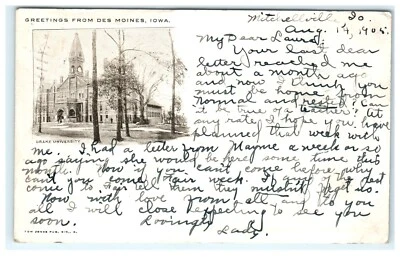 GREETINGS FROM DES MOINES, IOWA.
Mitchellville, Io.
Aug. 14, 1905.
My Dear Laura:
Your last dear
letter reached me
about a month ago
and now I think you
must be home from
Normal and rested. Can
it be true or
any rate, I hope you have
planned that week with
DRAKE UNIVERSITY
me. I had a letter from Mayme a week or so
ago saying she would be here some time this
month. Now if you can't come before, why
can't you come Fair week. If any of the rest
come to Fair tell them they must visit us.
Now with love from all, and to you
all I will close expecting to see you
soon. Lovingly